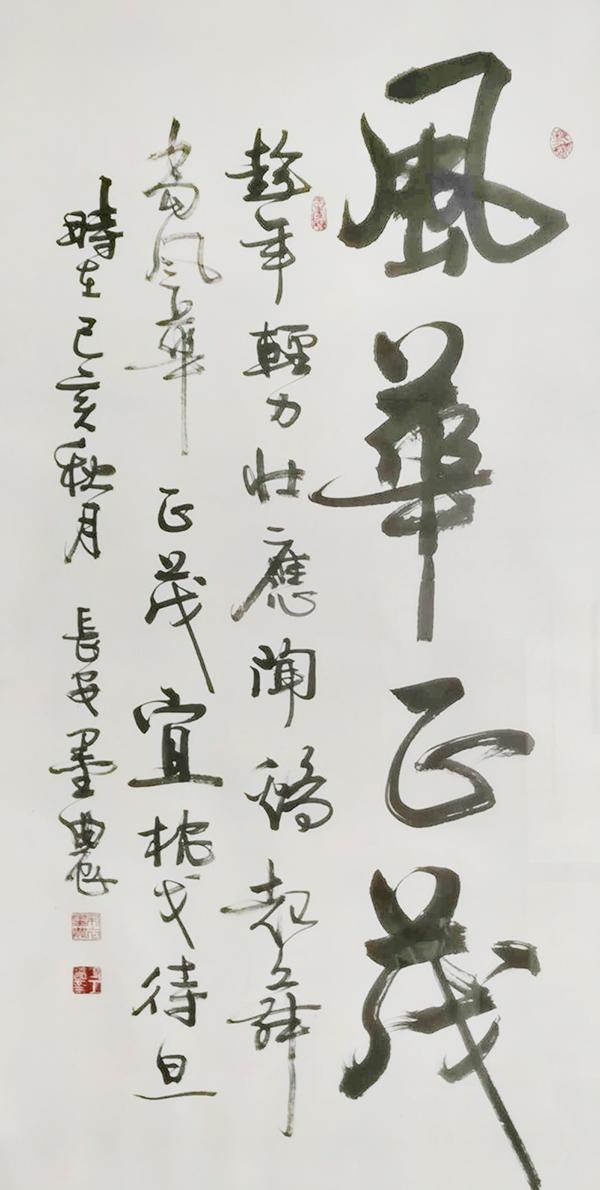 風華正茂
趁年輕力壯應聞鷄起舞
當風華正茂宜枕戈待旦
時在己亥秋月 長安墨農